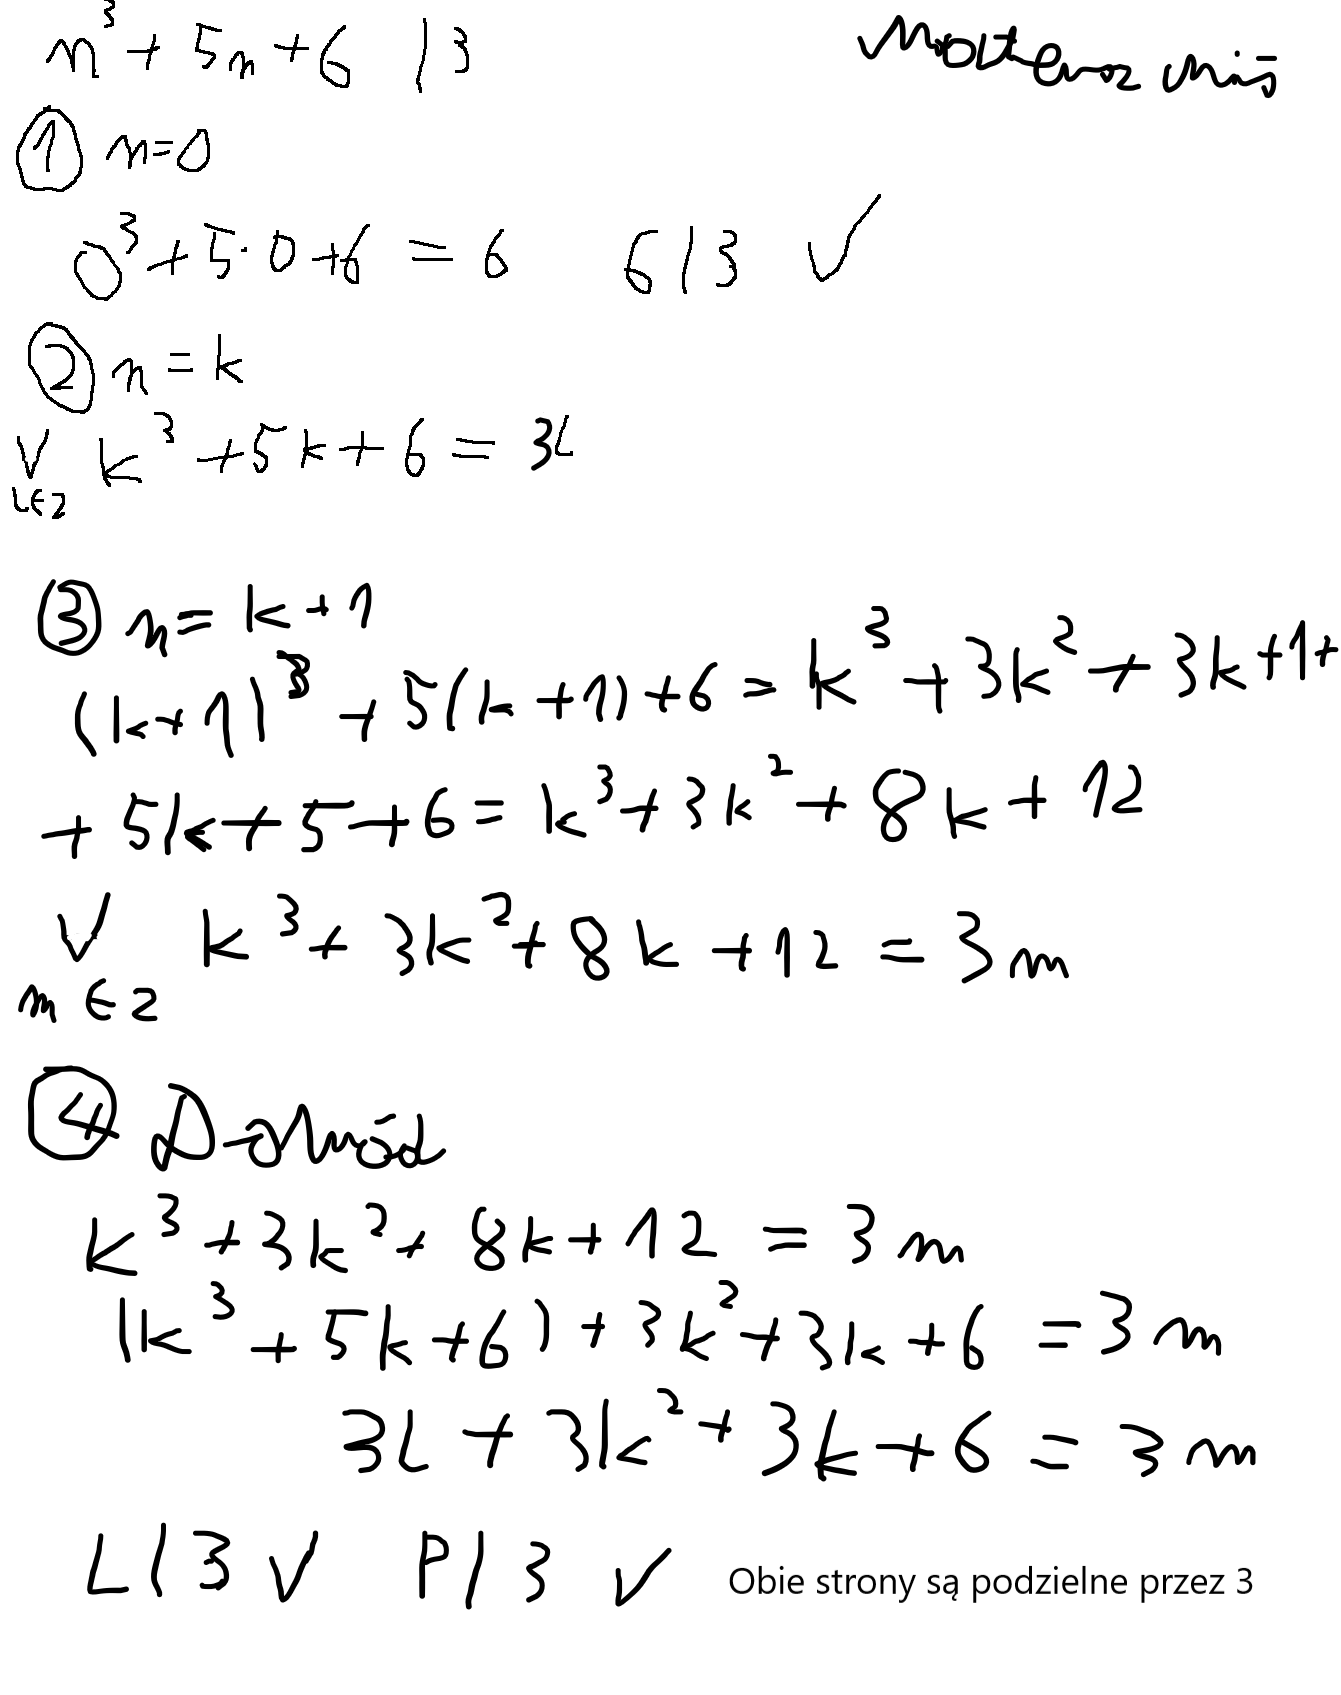 n³ + 5n + 6 | 3
① n=0
0³ + 5·0 + 6 = 6 6 | 3 ✓
② n = k
V k³ + 5k + 6 = 3L
L∈Z
③ n = k+1
(k+1)³ + 5(k+1) + 6 = k³ + 3k² + 3k + 1 +
+ 5k + 5 + 6 = k³ + 3k² + 8k + 12
V k³ + 3k² + 8k + 12 = 3m
m ∈ Z
④ Dowód
k³ + 3k² + 8k + 12 = 3m
(k³ + 5k + 6) + 3k² + 3k + 6 = 3m
3L + 3k² + 3k + 6 = 3m
L | 3 ✓ P | 3 ✓ Obie strony są podzielne przez 3